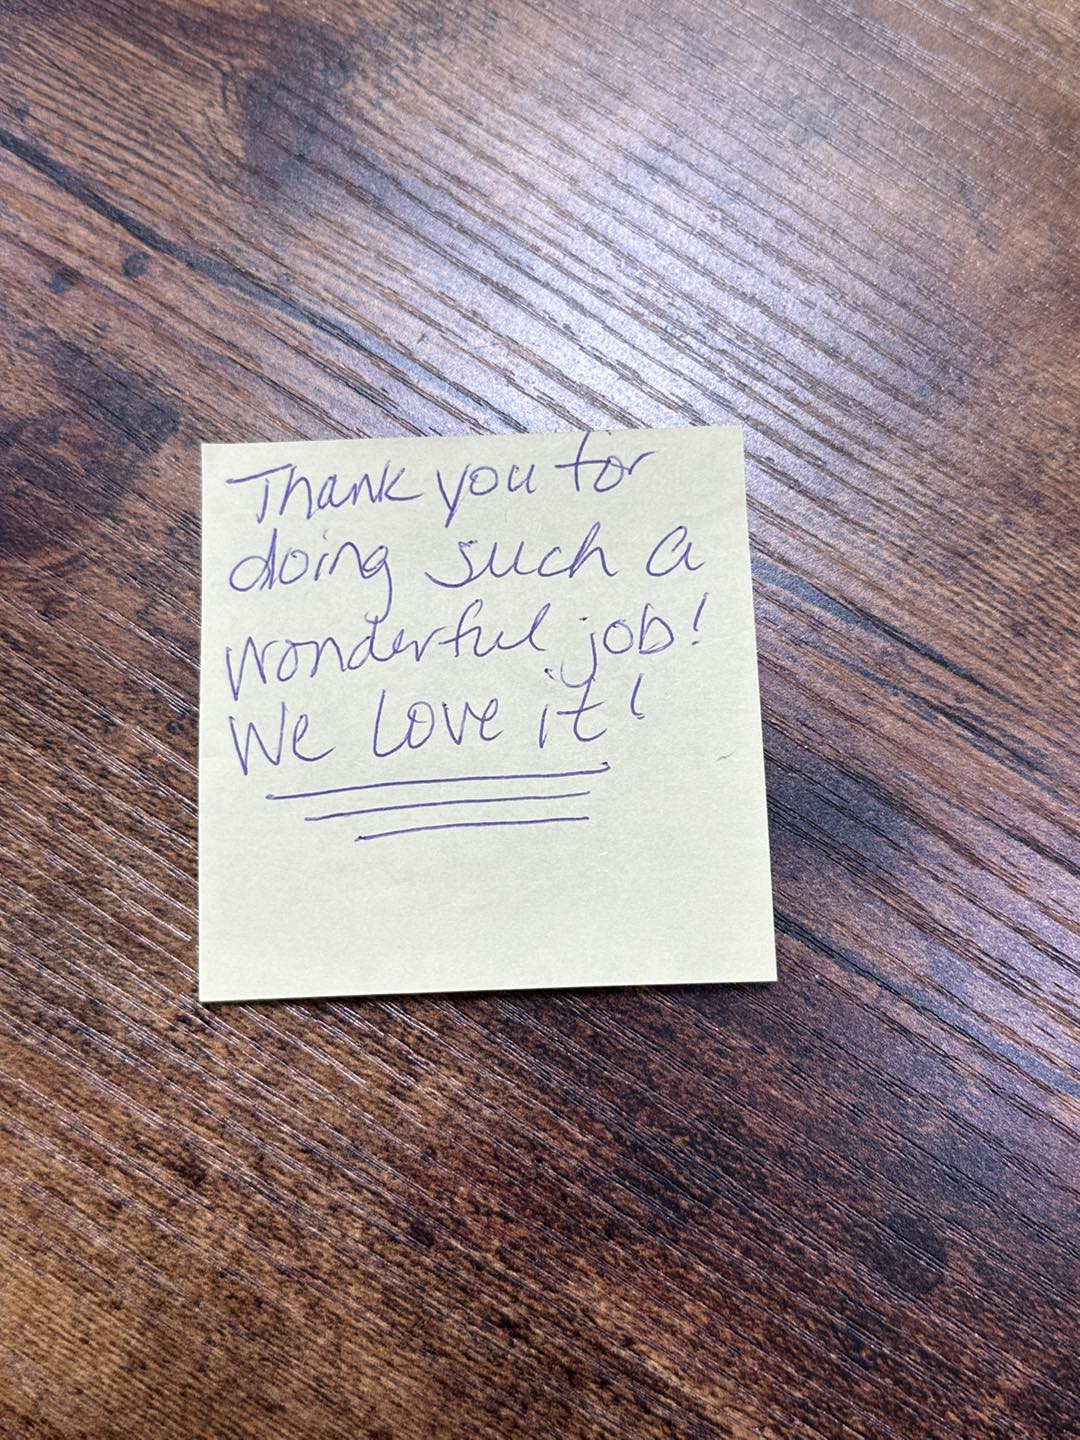 Thank you for
doing such a
wonderful job!
We love it!